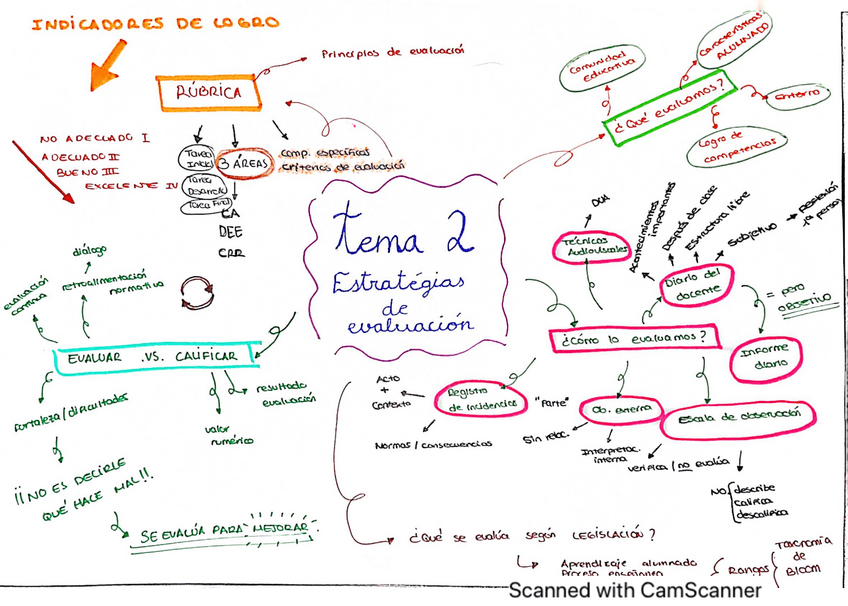 INDICADORES DE LOGRO
RÚBRICA
Principios de evaluación
NO ADECUADO I
ADECUADO II
BUENO III
EXCELENTE IV
Tarea
Inicial
Tarea
Desarrollo
Tarea Final
3 ÁREAS
CA
DEE
CRR
comp. específicas
criterios de evaluación
Tema 2
Estratégias
de
evaluación
¿Qué evaluamos?
Comunidad
Educativa
Características
ALUMNADO
Entorno
Logro de
competencias
EVALUAR .VS. CALIFICAR
evaluación
continua
diálogo
retroalimentación
normativa
fortaleza/dificultades
¡¡NO ES DECIRLE
QUÉ HACE MAL!!.
SE EVALÚA PARA MEJORAR
valor
numérico
resultado
evaluación
¿Cómo lo evaluamos?
Técnicas
Audiovisuales
DUA
Diario del
docente
Acontecimientos
importantes
Después de clase
Estructura libre
Subjetivo
Reflexión
1ª persona
= pero
OBJETIVO
Informe
diario
Registro
de incidencias
"Parte"
Acto
+
Contexto
Normas/consecuencias
Ob. externa
Sin relac.
Interpretac.
interna
Escala de observación
verifica/no evalúa
NO describe
califica
descalifica
¿Qué se evalúa según LEGISLACIÓN?
Aprendizaje alumnado
Proceso enseñanza
Rangos
Taxonomía
de
Bloom
Scanned with CamScanner